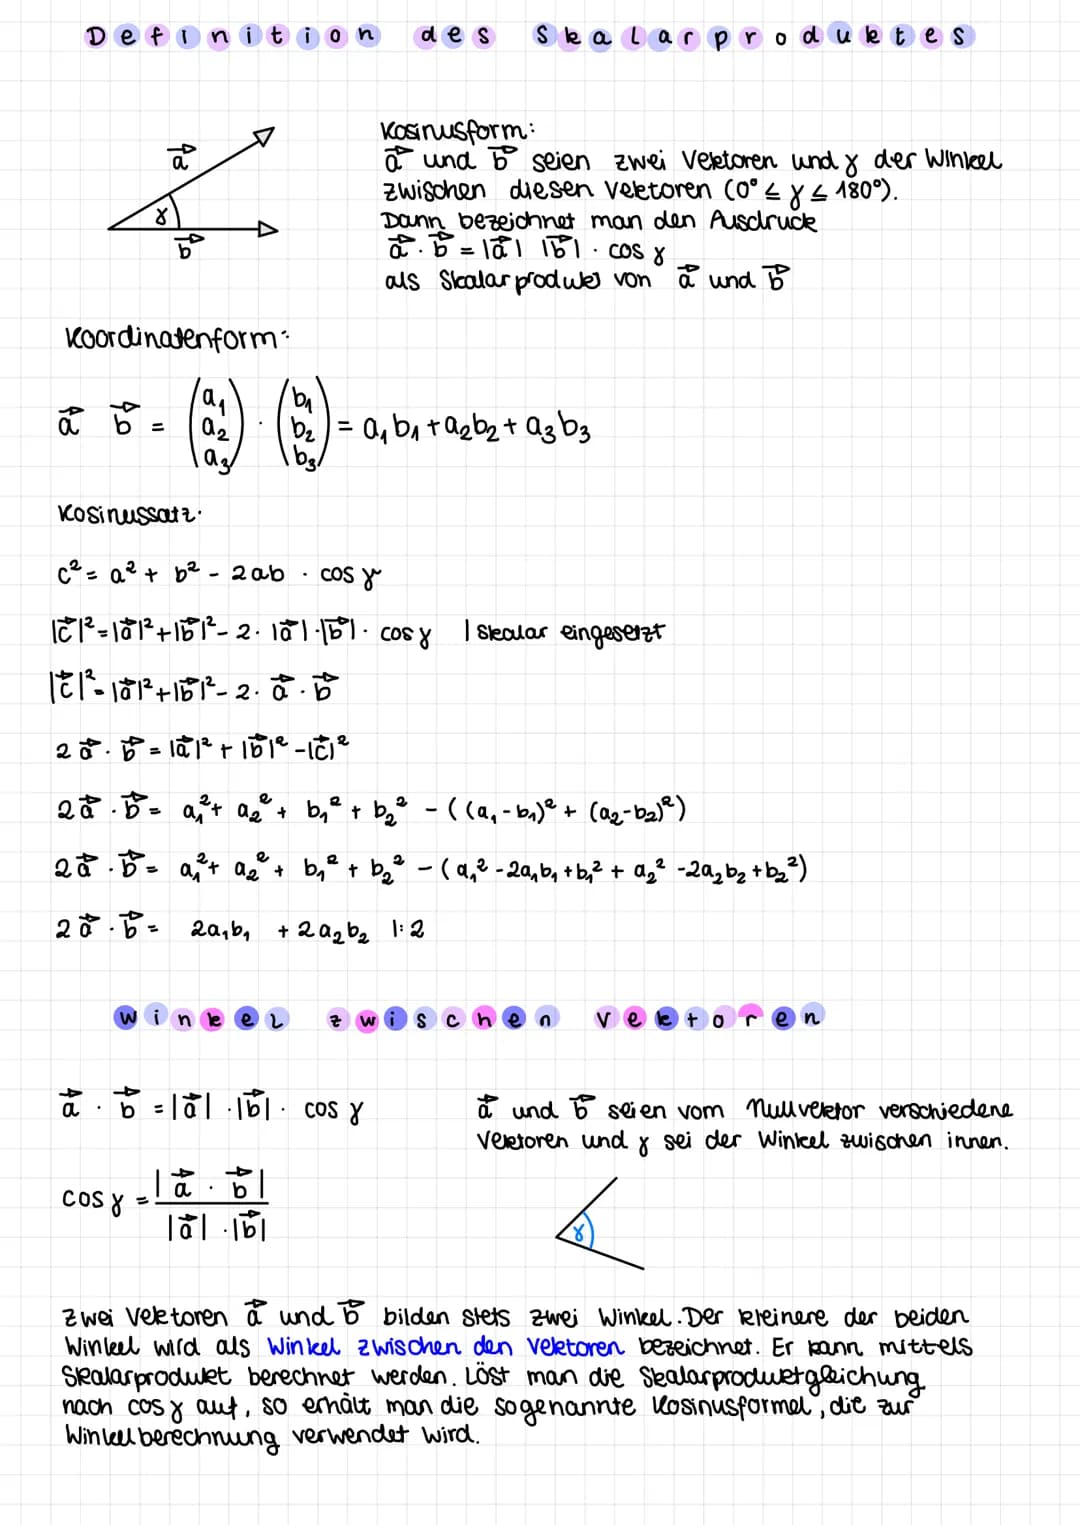 Definition des Skalarproduktes
Kosinusform:
a⃗ und b⃗ seien zwei Vektoren und γ der Winkel
zwischen diesen Vektoren (0° ≤ γ ≤ 180°).
Dann bezeichnet man den Ausdruck
a⃗ · b⃗ = |a⃗| |b⃗| · cos γ
als Skalarprodukt von a⃗ und b⃗
a⃗
γ
b⃗
Koordinatenform:
a⃗ b⃗ = (a₁ a₂ a₃) · (b₁ b₂ b₃) = a₁b₁ + a₂b₂ + a₃b₃
Kosinussatz.
c² = a² + b² - 2ab · cos γ
|c⃗|² = |a⃗|² + |b⃗|² - 2 · |a⃗| · |b⃗| · cos γ | Skalar eingesetzt
|c⃗|² = |a⃗|² + |b⃗|² - 2 · a⃗ · b⃗
2 a⃗ · b⃗ = |a⃗|² + |b⃗|² - |c⃗|²
2 a⃗ · b⃗ = a₁² + a₂² + b₁² + b₂² - ((a₁ - b₁)² + (a₂ - b₂)²)
2 a⃗ · b⃗ = a₁² + a₂² + b₁² + b₂² - (a₁² - 2a₁b₁ + b₁² + a₂² - 2a₂b₂ + b₂²)
2 a⃗ · b⃗ = 2a₁b₁ + 2a₂b₂ |: 2
winkel zwischen vektoren
a⃗ · b⃗ = |a⃗| · |b⃗| · cos γ
cos γ = |a⃗ · b⃗| / |a⃗| · |b⃗|
a⃗ und b⃗ seien vom Nullvektor verschiedene
Vektoren und γ sei der Winkel zwischen innen.
γ
Zwei Vektoren a⃗ und b⃗ bilden stets zwei Winkel. Der kleinere der beiden
Winkel wird als Winkel zwischen den Vektoren bezeichnet. Er kann mittels
Skalarprodukt berechnet werden. Löst man die Skalarproduktgleichung
nach cos γ auf, so erhält man die sogenannte Kosinusformel, die zur
Winkelberechnung verwendet wird.